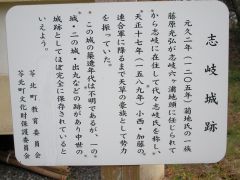 志岐城跡
元久二年（一二〇五年）菊池氏の一族
藤原光弘が志岐六ヶ浦地頭に任じられて
から志岐に在住して代々志岐氏を称し、
天正十七年（一五八九年）小西・加藤の
連合軍に降るまで天草の豪族として勢力
を振っていた。
この城の築造年代は不明であるが、一の
城・二の城・出丸などの跡があり中世の
城跡としてほぼ完全に保存されていると
いえよう。
苓北町教育委員会
苓北町文化財保護委員会